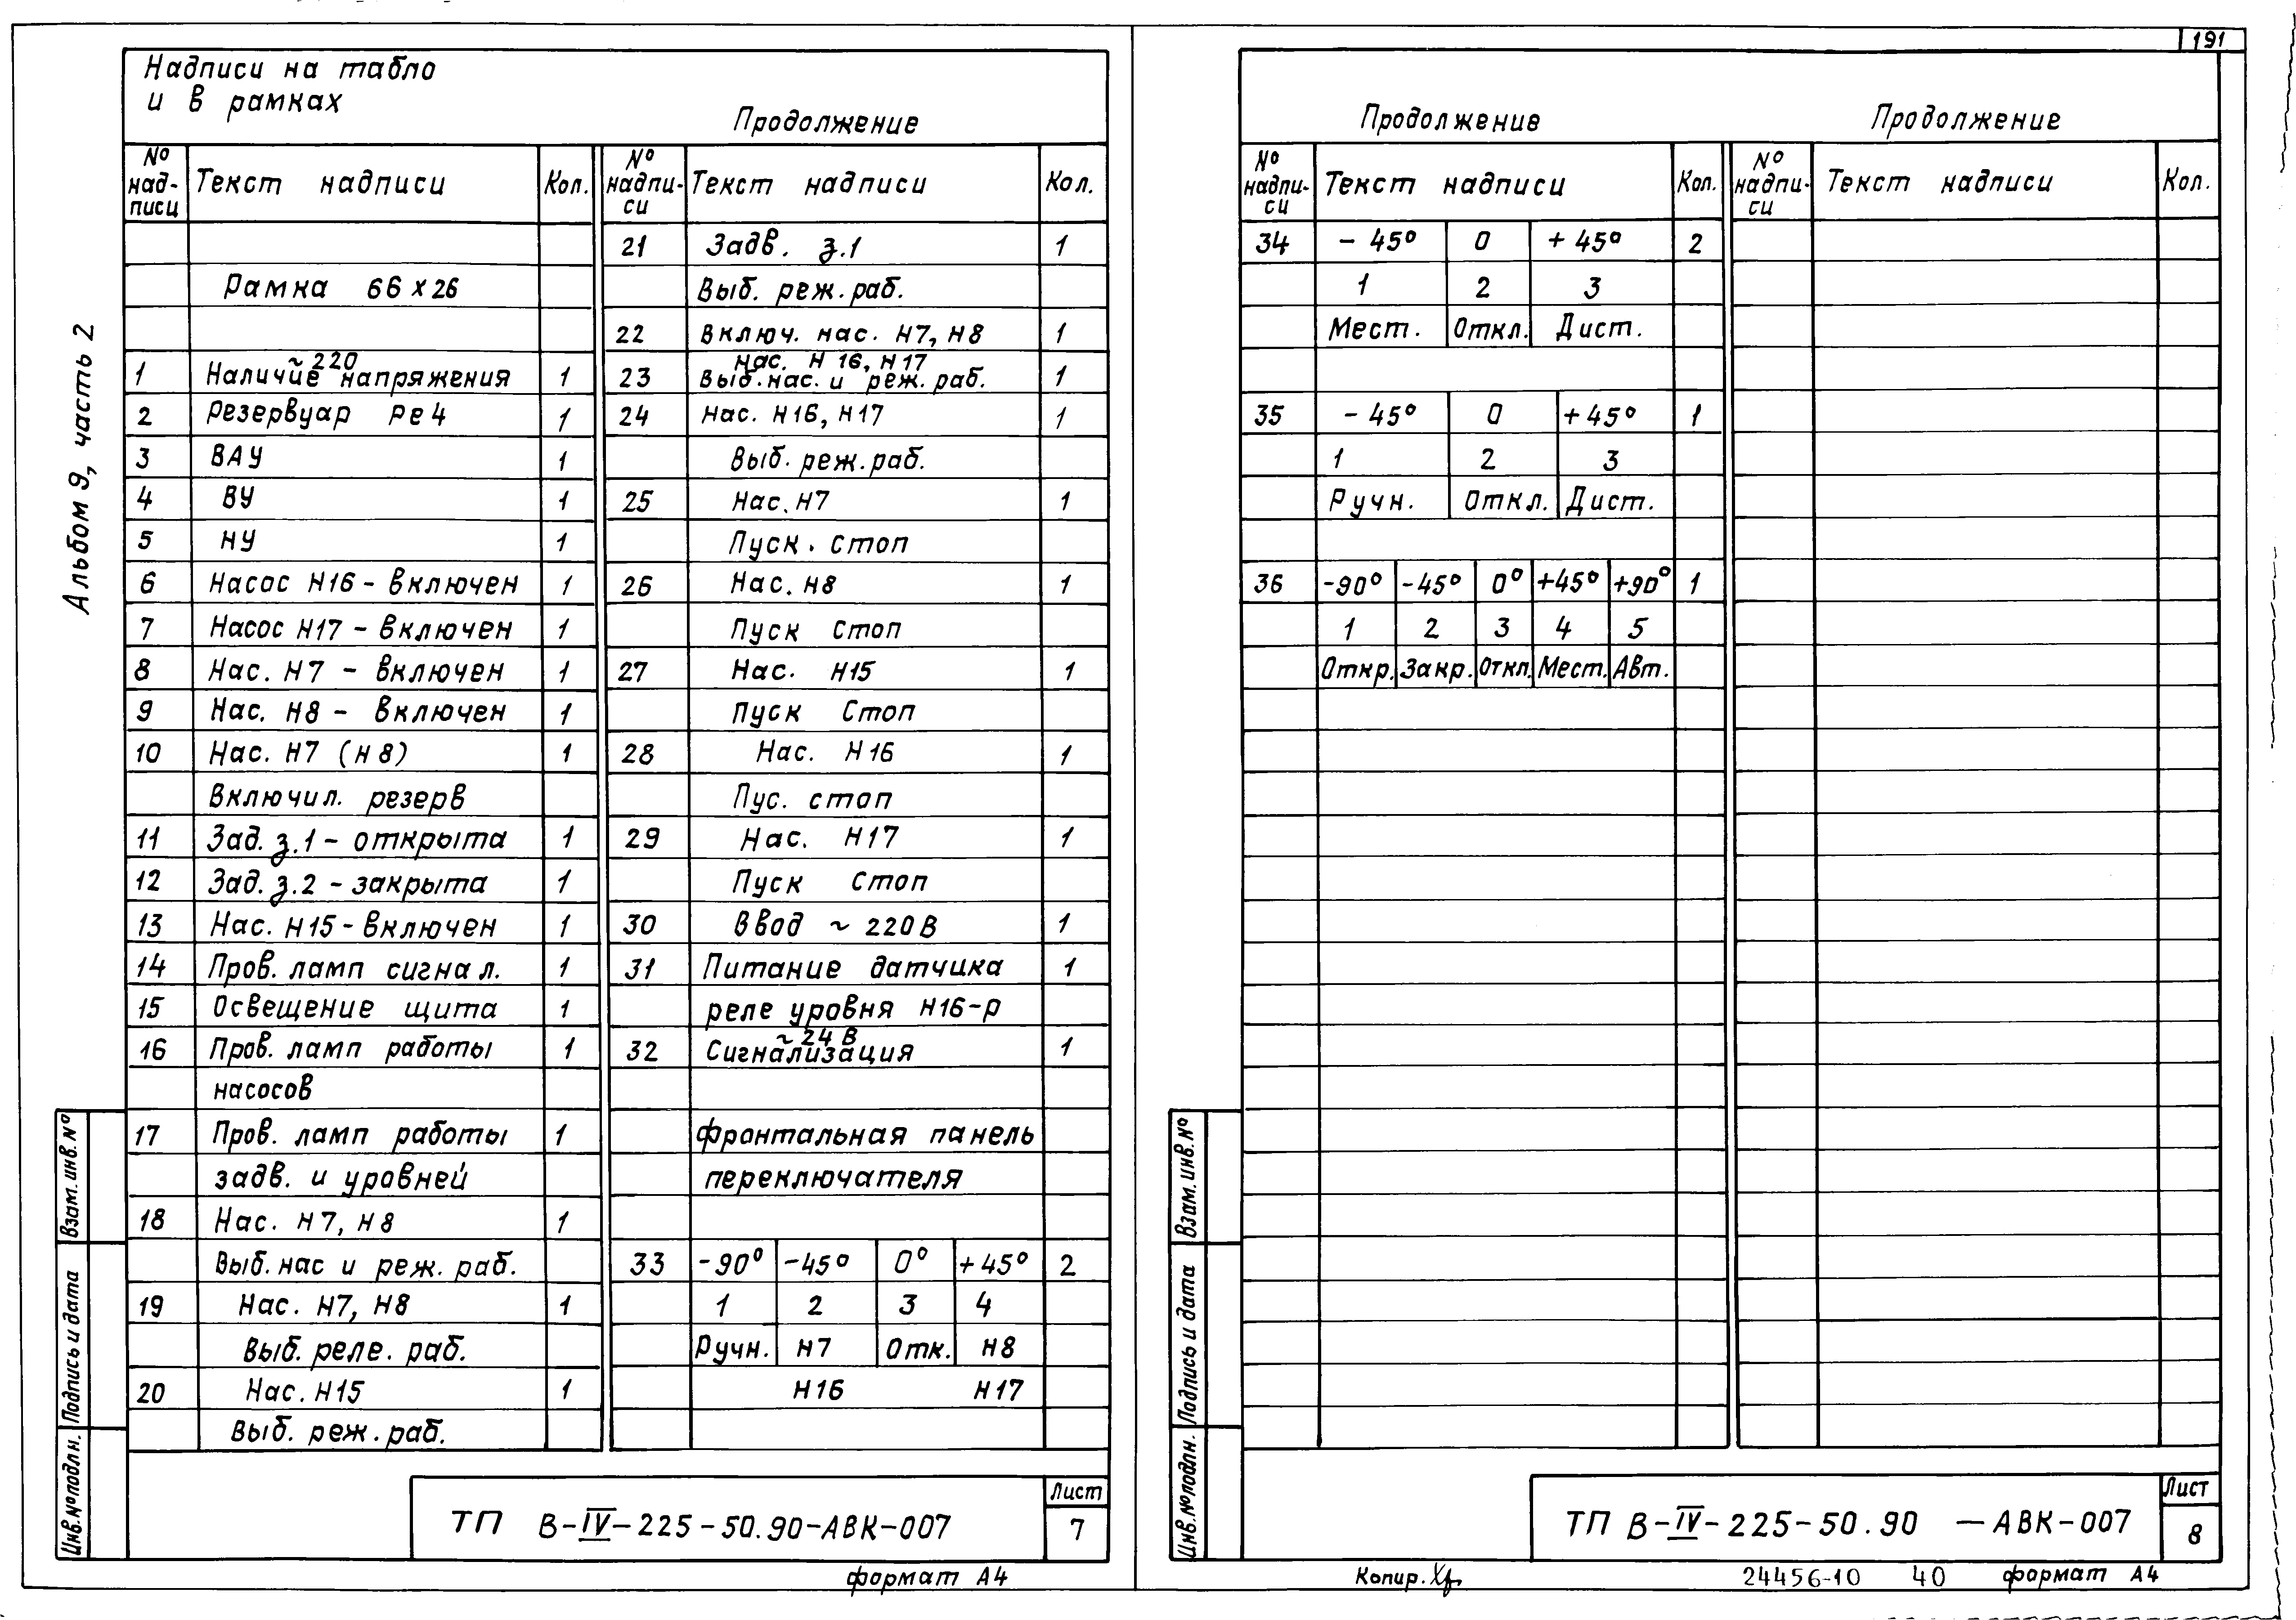 191
Альбом 9, часть 2
Надписи на табло
и в рамках
Продолжение
№ надписи Текст надписи Кол.
Рамка 66×26
1 Наличие ~220 напряжения 1
2 Резервуар Ре4 1
3 ВАУ 1
4 ВУ 1
5 НУ 1
6 Насос Н16 - включен 1
7 Насос Н17 - включен 1
8 Нас. Н7 - включен 1
9 Нас. Н8 - включен 1
10 Нас. Н7 (Н8) 1
Включил. резерв
11 Зад. з.1 - открыта 1
12 Зад. з.2 - закрыта 1
13 Нас. Н15 - включен 1
14 Пров. ламп сигнал. 1
15 Освещение щита 1
16 Пров. ламп работы 1
насосов
17 Пров. ламп работы 1
задв. и уровней
18 Нас. Н7, Н8 1
Выб. нас и реж. раб.
19 Нас. Н7, Н8 1
Выб. реле. раб.
20 Нас. Н15 1
Выб. реж. раб.
№ надписи Текст надписи Кол.
21 Задв. з.1 1
Выб. реж. раб.
22 Включ. нас. Н7, Н8 1
Нас. Н16, Н17
23 Выб. нас. и реж. раб. 1
24 Нас. Н16, Н17 1
Выб. реж. раб.
25 Нас. Н7 1
Пуск. стоп
26 Нас. Н8 1
Пуск стоп
27 Нас. Н15 1
Пуск Стоп
28 Нас. Н16 1
Пус. стоп
29 Нас. Н17 1
Пуск стоп
30 Ввод ~ 220 В 1
31 Питание датчика 1
реле уровня Н16-р
~24 В
32 Сигнализация 1
фронтальная панель
переключателя
33 -90° -45° 0° +45° 2
1 2 3 4
Ручн. Н7 Отк. Н8
Н16 Н17
Взам. инв. №
Подпись и дата
Инв. № подлн.
ТП В-IV-225-50.90-АВК-007
Лист
7
формат А4
Продолжение
№ надписи Текст надписи Кол.
34 - 45° 0 + 45° 2
1 2 3
Мест. Откл. Дист.
35 - 45° 0 +45° 1
1 2 3
Ручн. Откл. Дист.
36 -90° -45° 0° +45° +90° 1
1 2 3 4 5
Откр. Закр. Откл. Мест. Авт.
Продолжение
№ надписи Текст надписи Кол.
Взам. инв. №
Подпись и дата
Инв. № подлн.
ТП В-IV-225-50.90 -АВК-007
Лист
8
Копир.
24456-10 40 формат А4